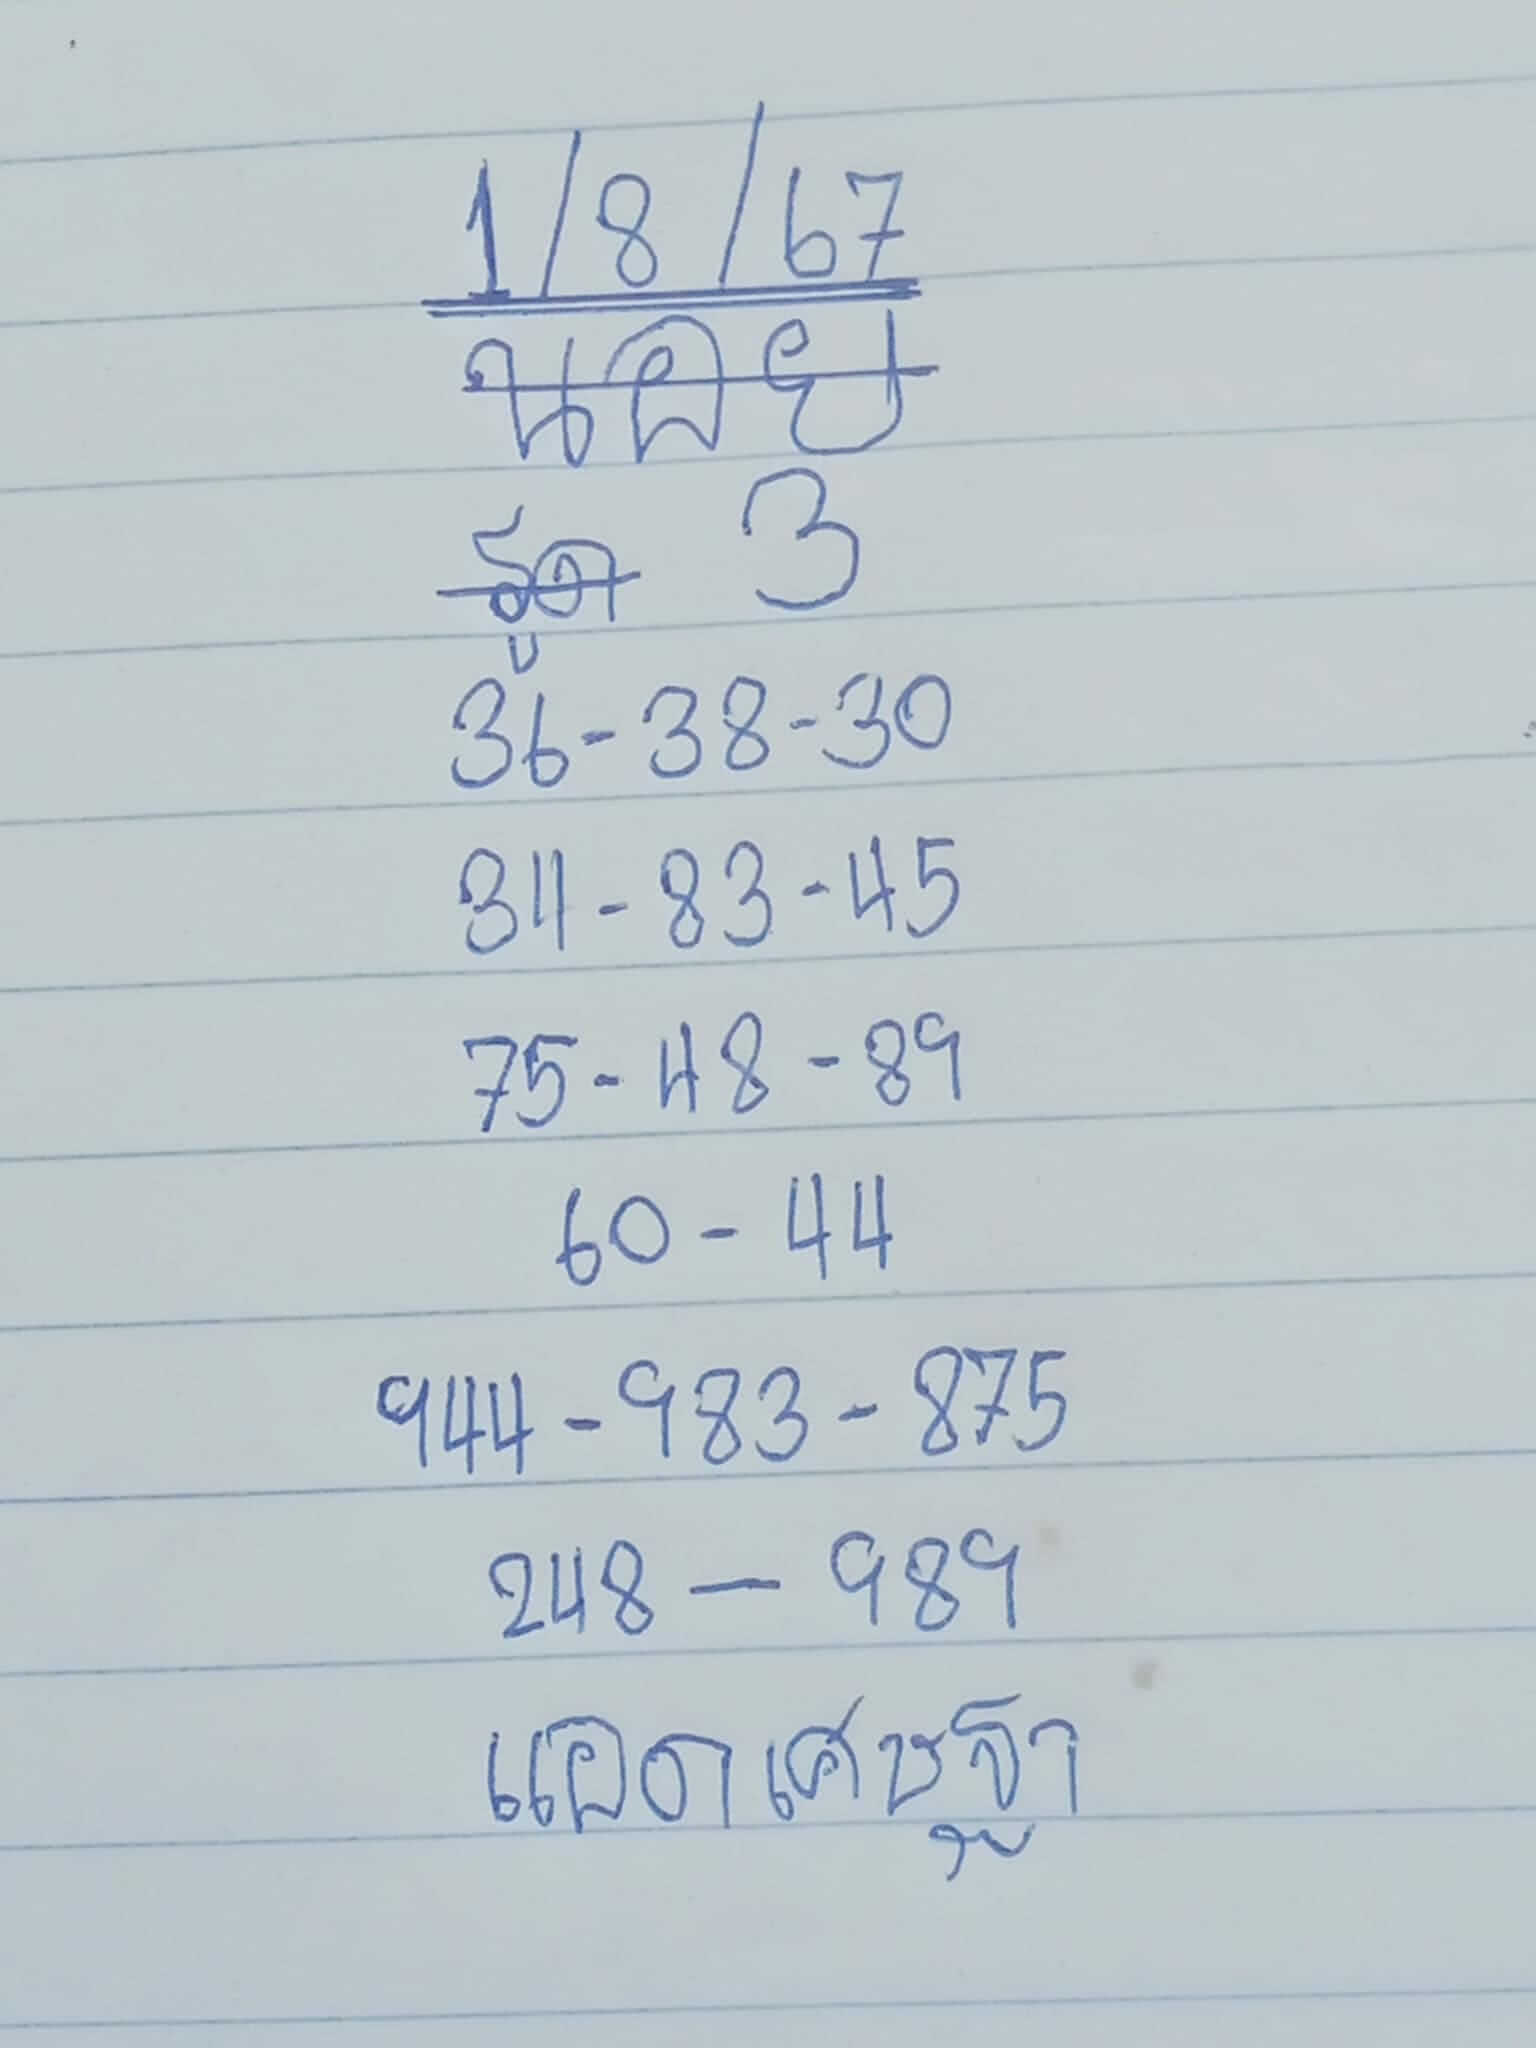 1/8/67
นอย
รูด 3
36-38-30
34-83-45
75-48-89
60-44
944-983-875
248-989
แอดเศษฐา